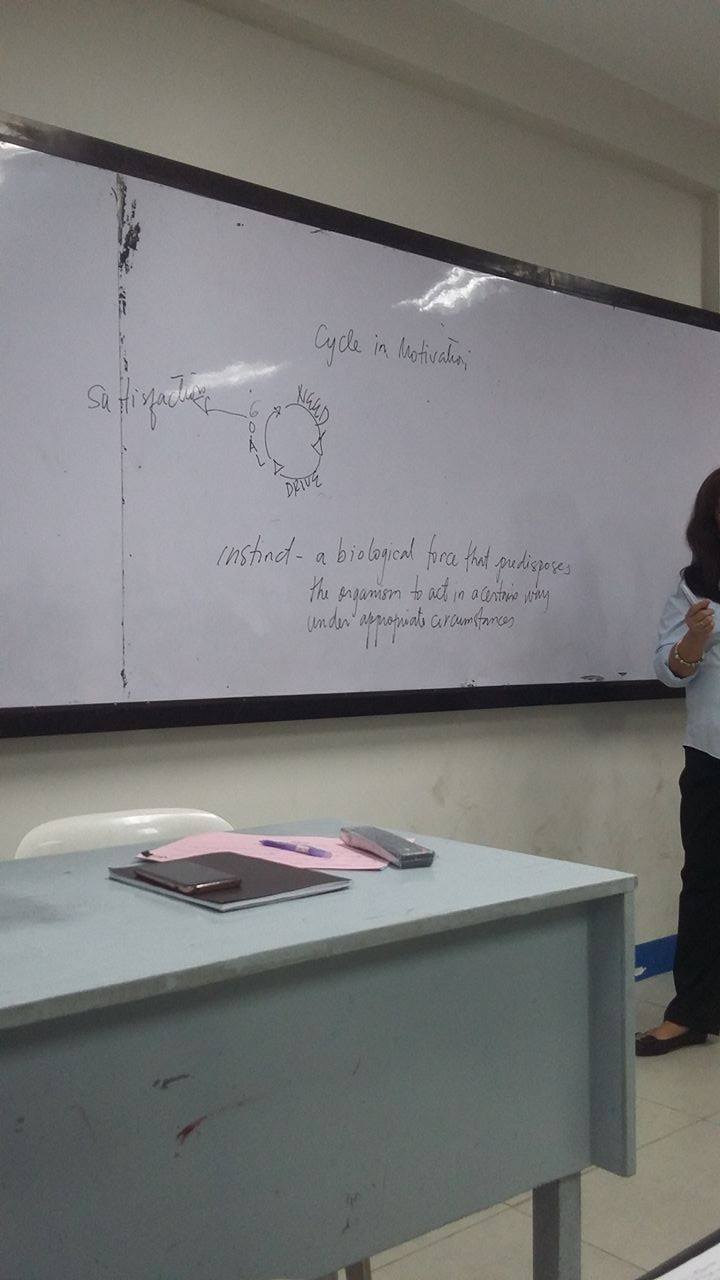 Cycle in Motivation
Satisfaction
GOAL
NEED
DRIVE
instinct - a biological force that predisposes
the organism to act in a certain way
under appropriate circumstances